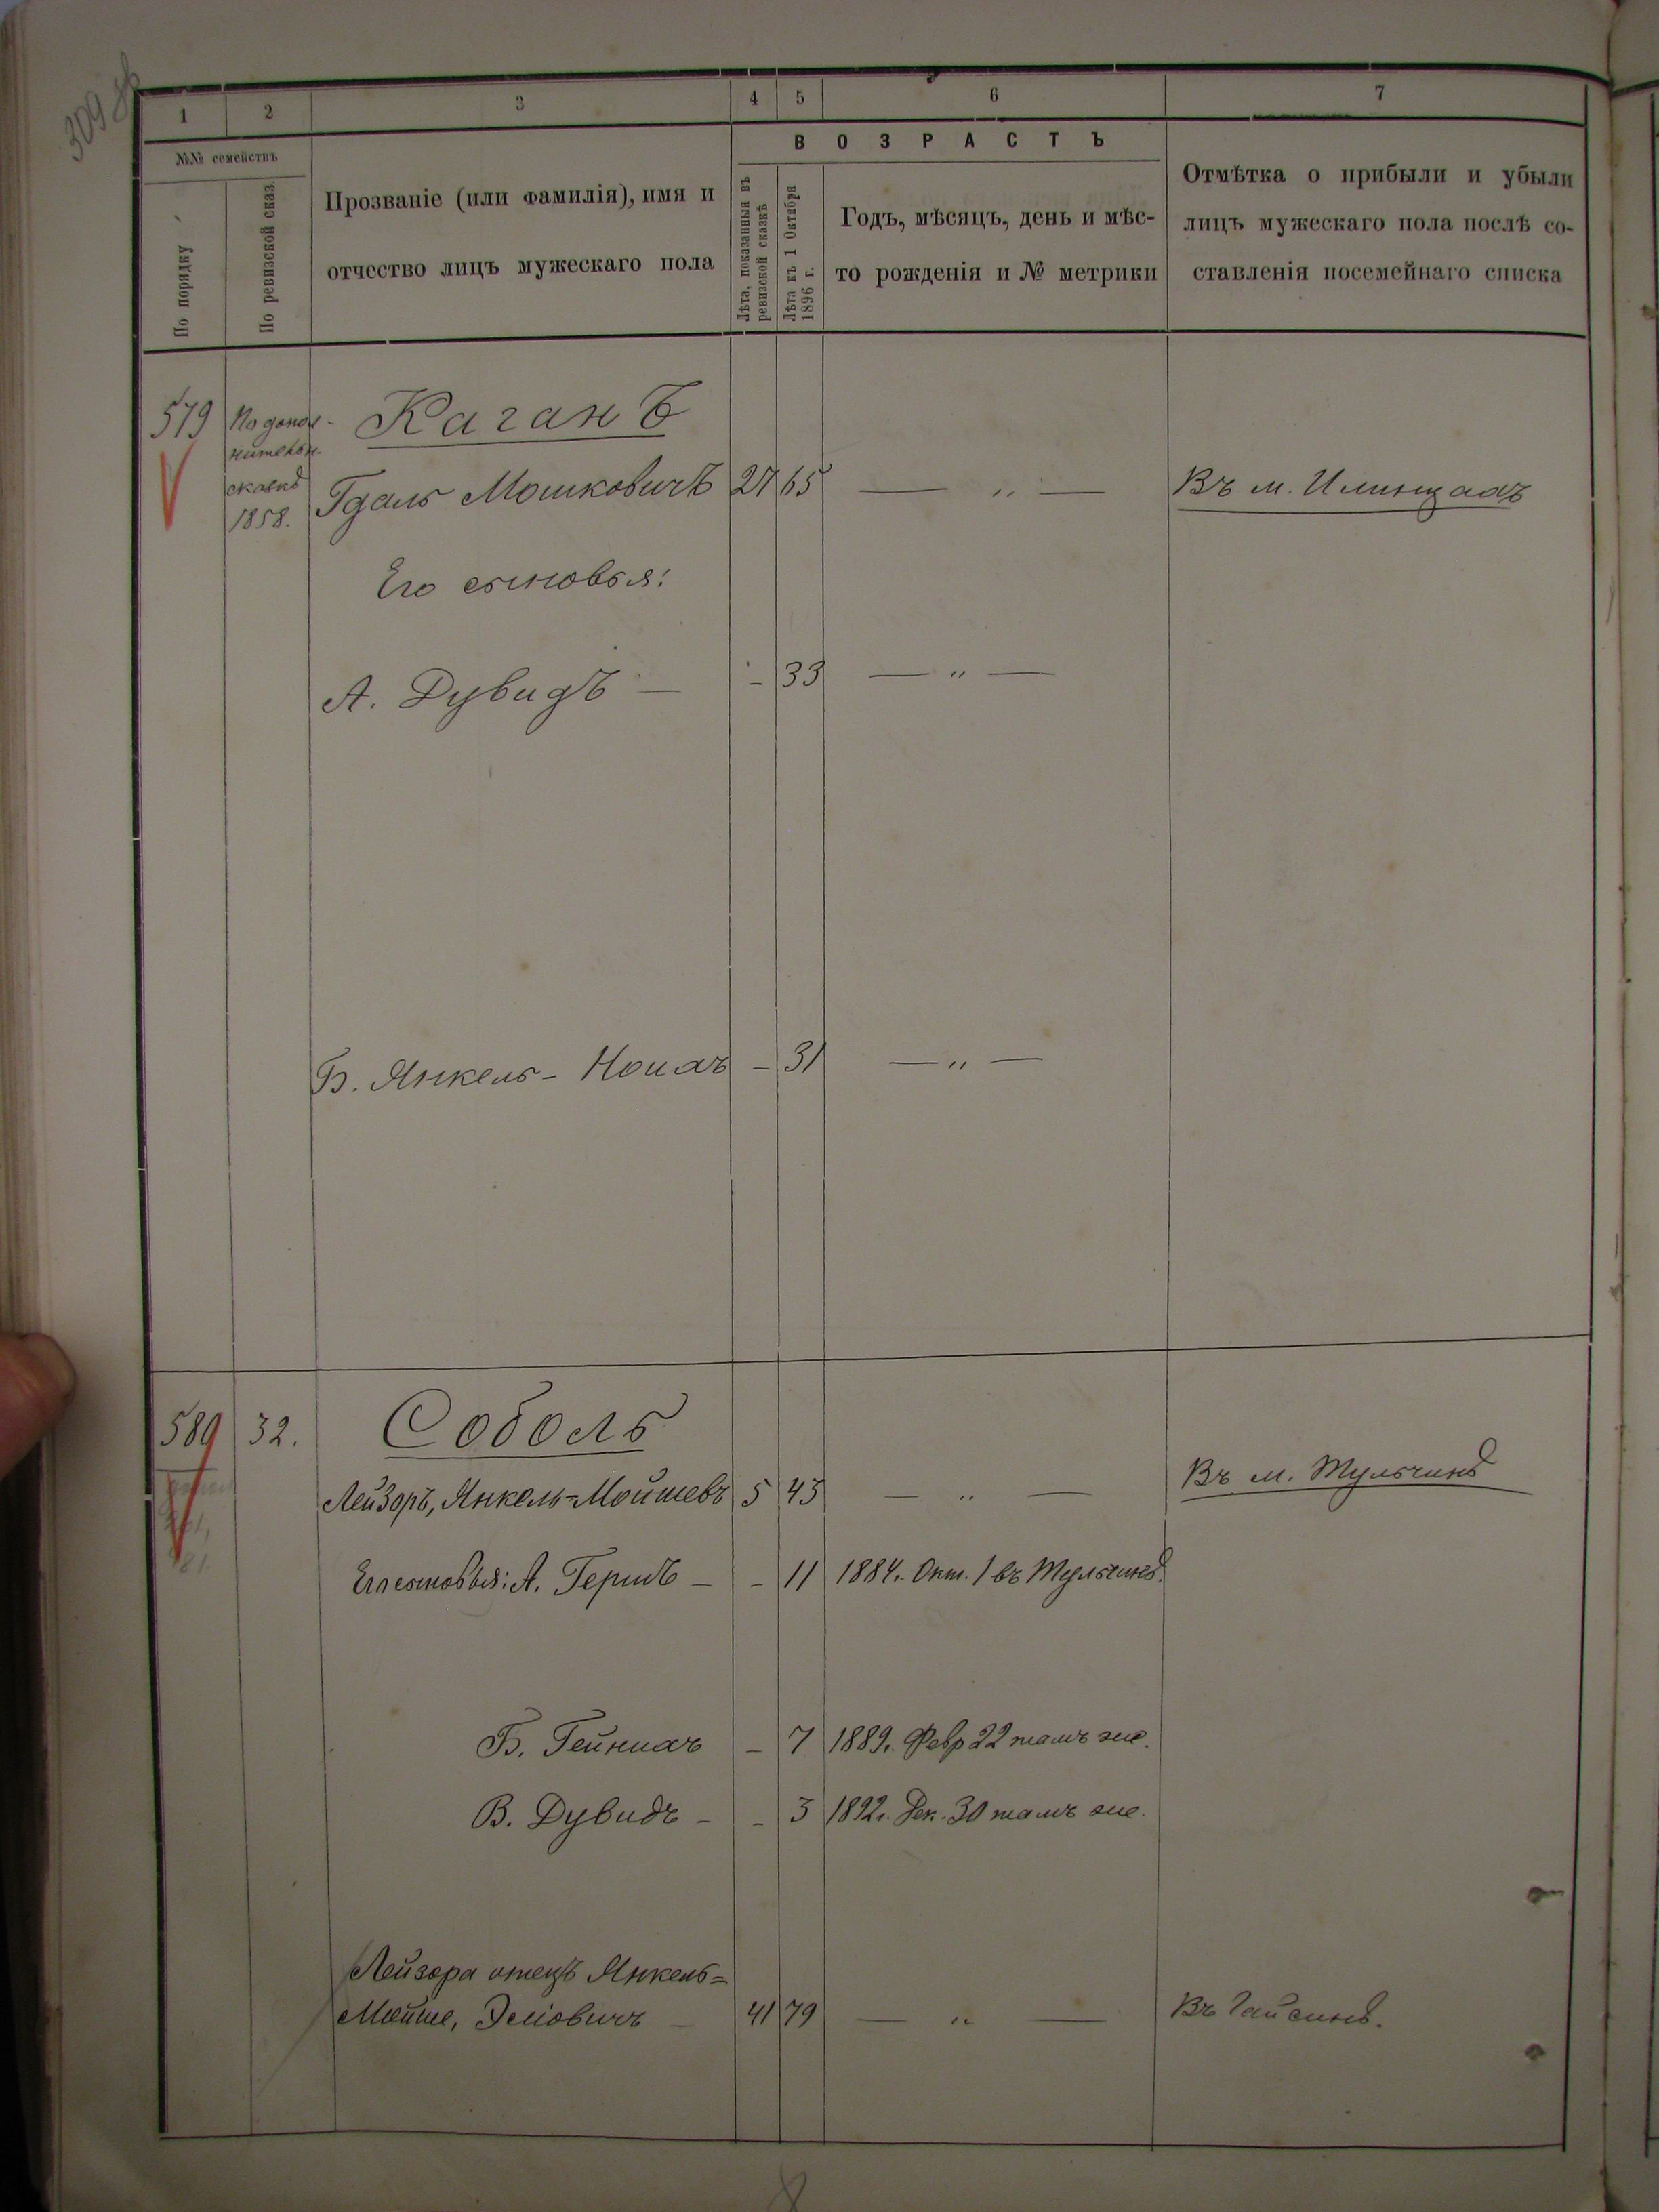 1 2 3 4 5 6 7
№№ семействъ
По порядку
По ревизской сказ.
Прозваніе (или фамилія), имя и
отчество лицъ мужескаго пола
ВОЗРАСТЪ
Лѣта, показанныя въ
ревизской сказкѣ
Лѣта къ 1 Октября
1896 г.
Годъ, мѣсяцъ, день и мѣс-
то рожденія и № метрики
Отмѣтка о прибыли и убыли
лицъ мужескаго пола послѣ со-
ставленія посемейнаго списка
579 По допол-
нительн.
сказкѣ
1858.
Каганъ
Гдаль Мошковичъ 27 65 — " — Въ м. Илинцахъ
Его сыновья:
А. Дувидъ — - 33 — " —
Б. Янкель- - 31 — " —
580 32. Соболь
Лейзоръ, Янкель=Мойшевъ 5 43 — " — Въ м. Тульчинѣ
Его сыновья: А. Гершъ — - 11 1884г. Окт. 1 въ Тульчинѣ.
Б. - 7 1889г. Февр 22 тамъ же.
В. Дувидъ - - 3 1892г. Дек. 30 тамъ же.
Лейзора отецъ Янкель=
Мойше, — 41 79 — " — Въ Гайсинѣ.